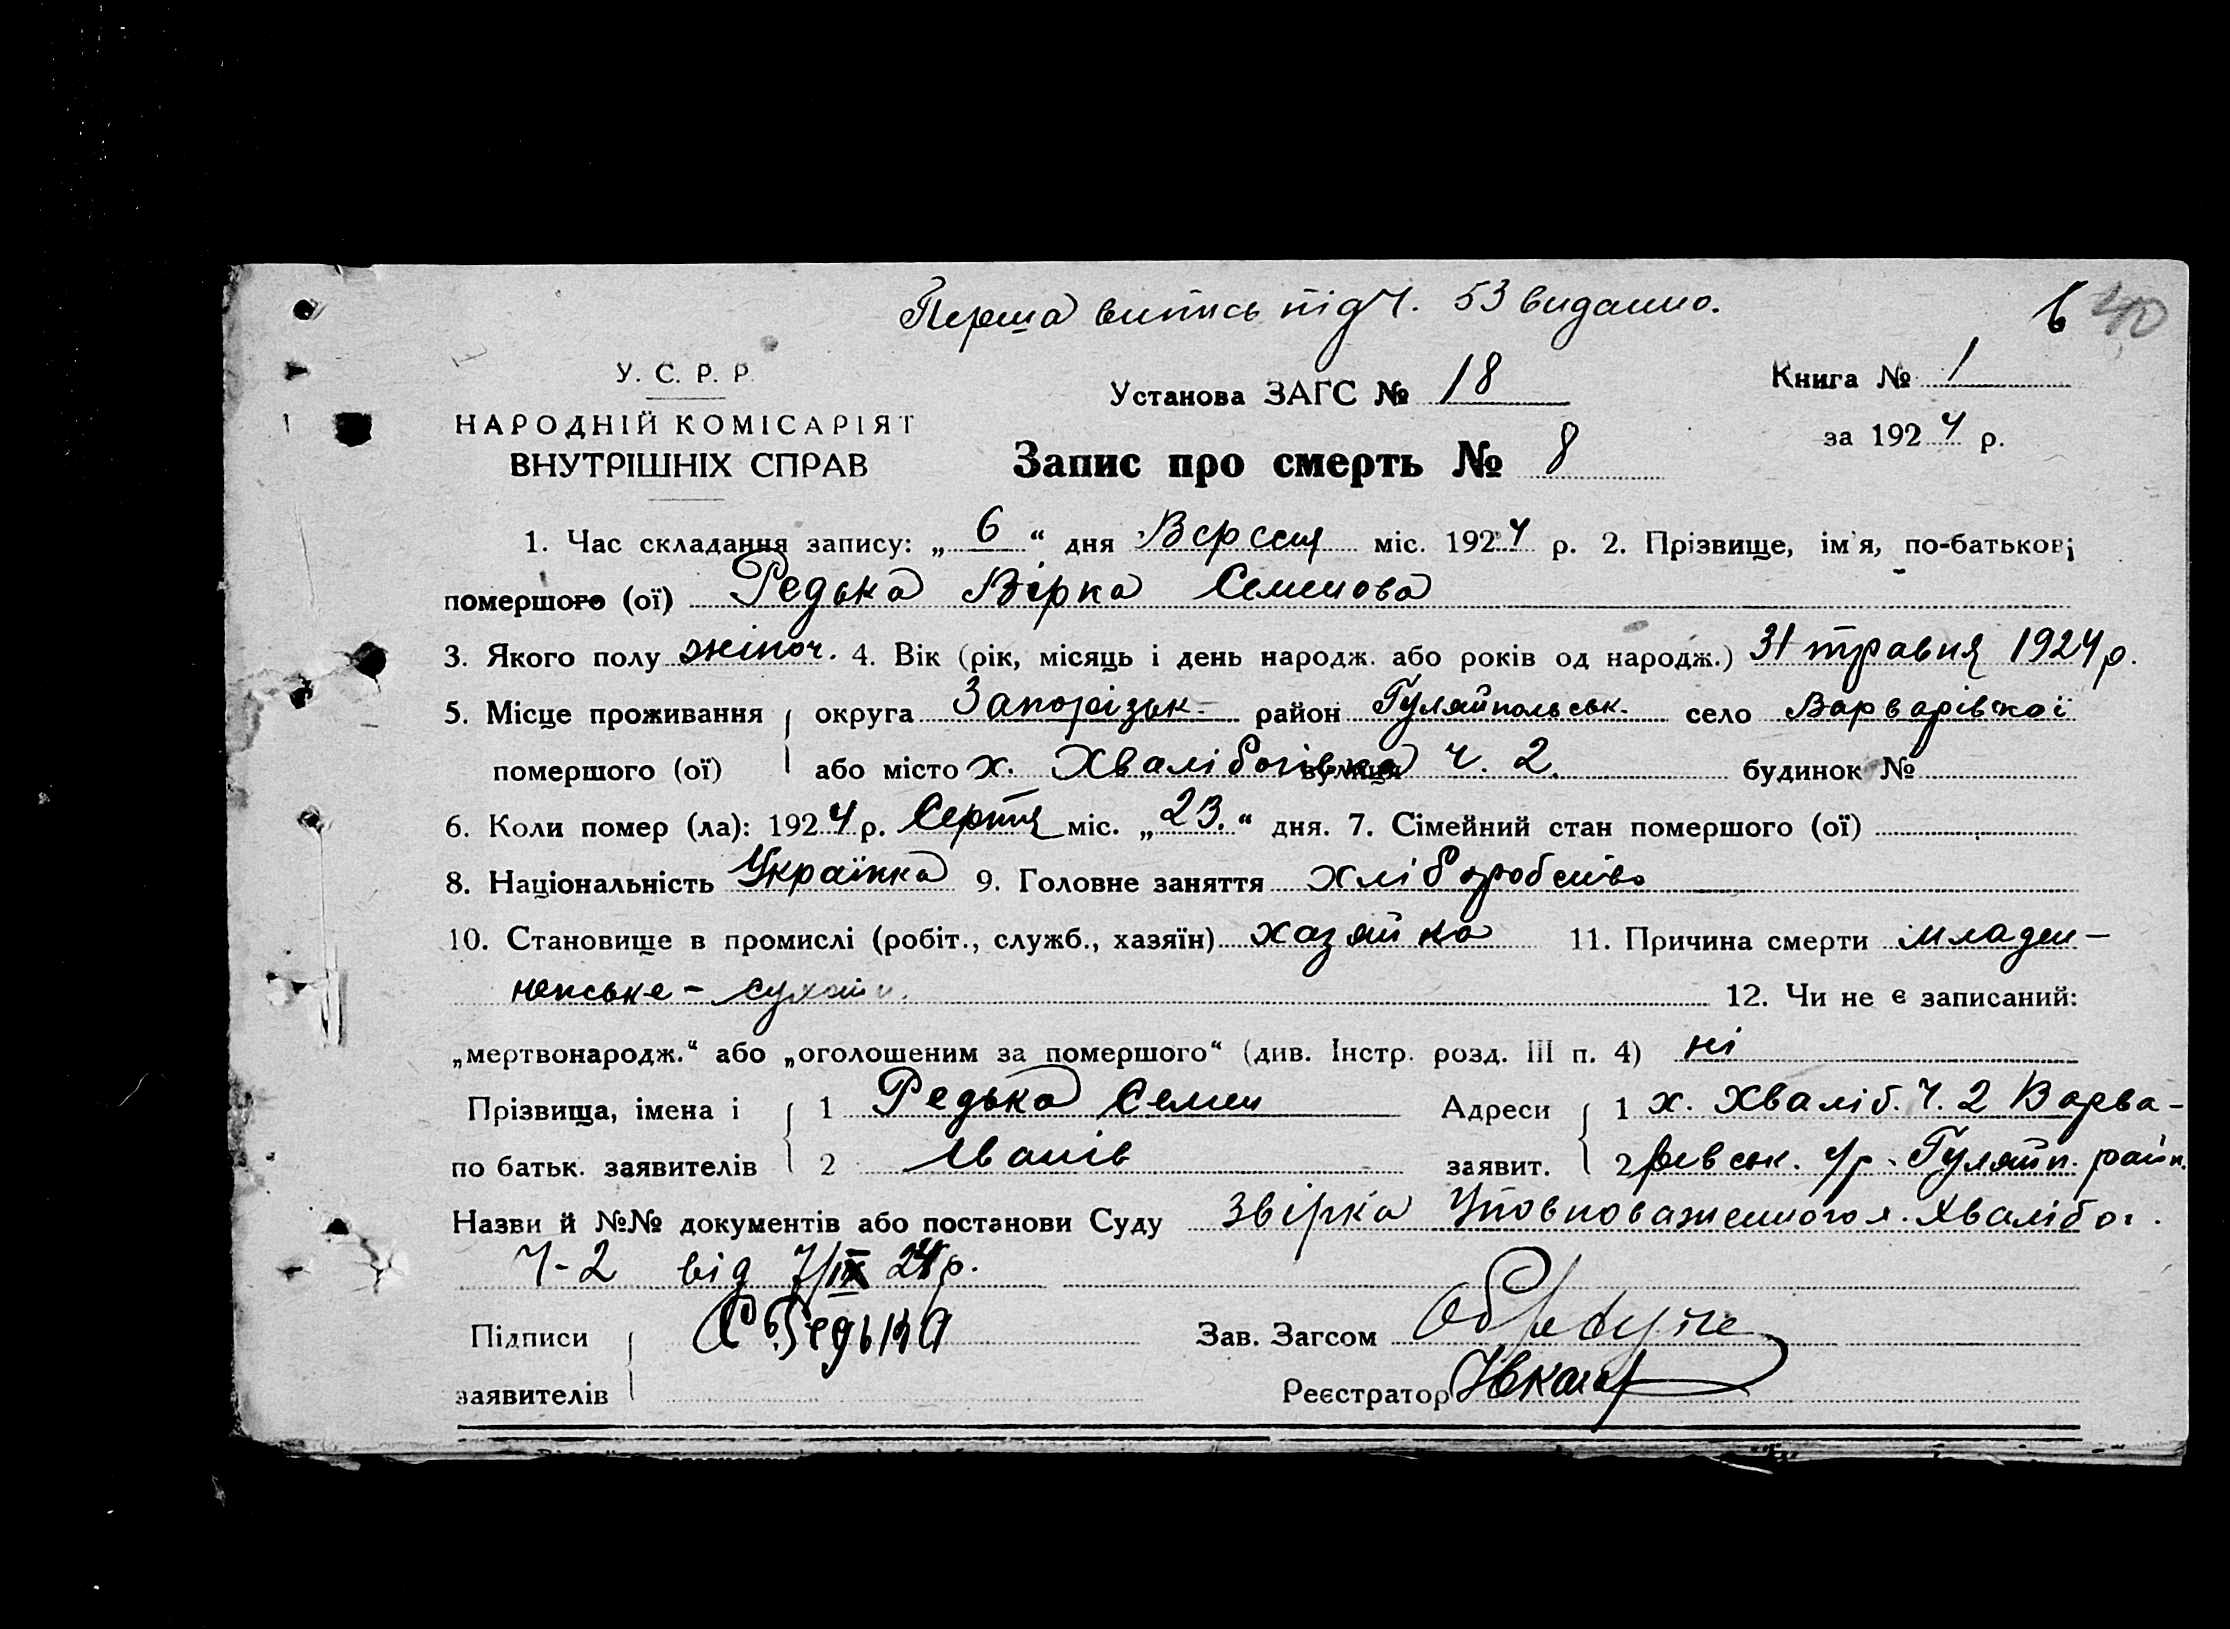 Перша випись під Ч. 53 видано.
6 40
У. С. Р. Р.
НАРОДНІЙ КОМІСАРІЯТ
ВНУТРІШНІХ СПРАВ
Установа ЗАГС № 18
Книга № 1
за 1924 р.
Запис про смерть № 8
1. Час складання запису: „6“ дня Версня міс. 1924 р. 2. Прізвище, ім'я, по-батькові
помершого (ої) Редька Вірка Семенова
3. Якого полу жіноч. 4. Вік (рік, місяць і день народж. або років од народж.) 31 травня 1924 р.
5. Місце проживання округа Запорізьк. район Гуляйпольськ. село Варварівскої
помершого (ої) або місто х. Хвалібогівка вулиця Ч. 2. будинок №
6. Коли помер (ла): 1924 р. Серпня міс. „23.“ дня. 7. Сімейний стан помершого (ої)
8. Національність Українка 9. Головне заняття хліборобство
10. Становище в промислі (робіт., служб., хазяїн) хазяйка 11. Причина смерти младен-
ченське - 12. Чи не є записаний:
„мертвонародж.“ або „оголошеним за помершого“ (див. Інстр. розд. III п. 4) ні
Прізвища, імена і 1 Редька Семен Адреси 1 х. Хваліб. Ч. 2 Варва-
по батьк. заявителів 2 Іванів заявит. 2 рівськ. Гуляйп. райн.
Назви й №№ документів або постанови Суду Звірка Уповноваженного х. Хвалібог.
Ч-2 від 7/IX 24 р.
Підписи С Редька Зав. Загсом
заявителів Реєстратор